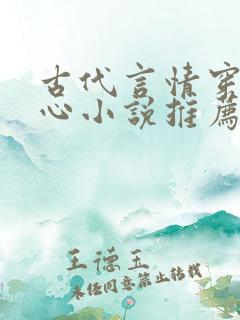 古代言情穿
心小说推荐
王德玉
未经同意禁止转载